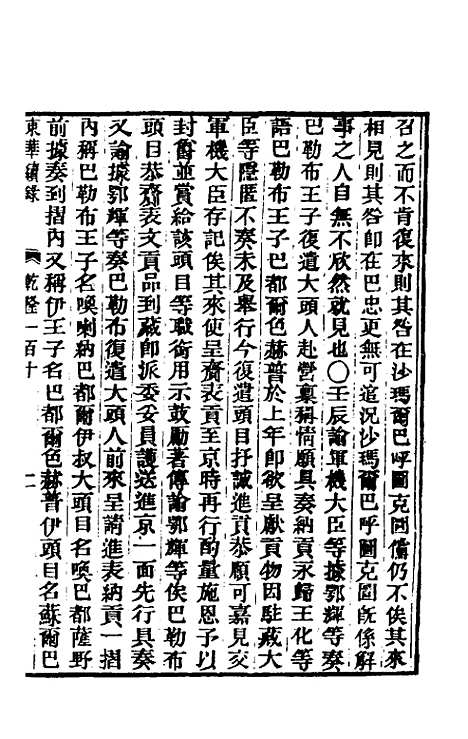 召之而不肯復來則其咎在沙瑪爾巴呼圖克圖倘仍不俟其來
相見則其咎卽在巴忠更無可追況沙瑪爾巴呼圖克圖旣係解
事之人自無不欣然就見也〇壬辰諭軍機大臣等據郭輝等奏
巴勒布王子復遣大頭人赴營稟稱情願具奏納貢永歸王化等
語巴勒布王子巴都爾色赫普於上年卽欲呈獻貢物因駐藏大
臣等隱匿不奏未及舉行今復遣頭目抒誠進貢恭順可嘉見交
軍機大臣存記俟其來使呈齎表貢至京時再行酌量施恩予以
封爵並賞給該頭目等職銜用示鼓勵著傳諭郭輝等俟巴勒布
頭目恭齎表文貢品到藏卽派委妥員護送進京一面先行具奏
又諭據郭輝等奏巴勒布復遣大頭人前來呈請進表納貢一摺
內稱巴勒布王子名喚喇納巴都爾伊叔大頭目名喚巴都薩野
前據奏到摺內又稱伊王子名巴都爾色赫普伊頭目名蘇爾巴
東華續錄 乾隆一百十 二